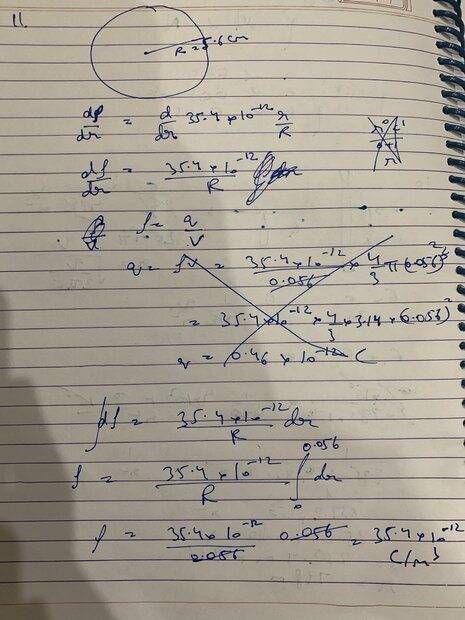 11.
R = 5.6 cm
dρ/dr = d/dr 35.4 × 10⁻¹² r/R
dρ/dr = 35.4 × 10⁻¹²/R
ρ = q/V
q = ρV = 35.4 × 10⁻¹²/0.056 × 4/3 π (0.056)³
= 35.4 × 10⁻¹² × 4/3 × 3.14 × (0.056)²
q = 0.46 × 10⁻¹² C
∫dρ = 35.4 × 10⁻¹²/R dr
ρ = 35.4 × 10⁻¹²/R ∫₀^0.056 dr
ρ = 35.4 × 10⁻¹²/0.056 0.056 = 35.4 × 10⁻¹²
C/m³